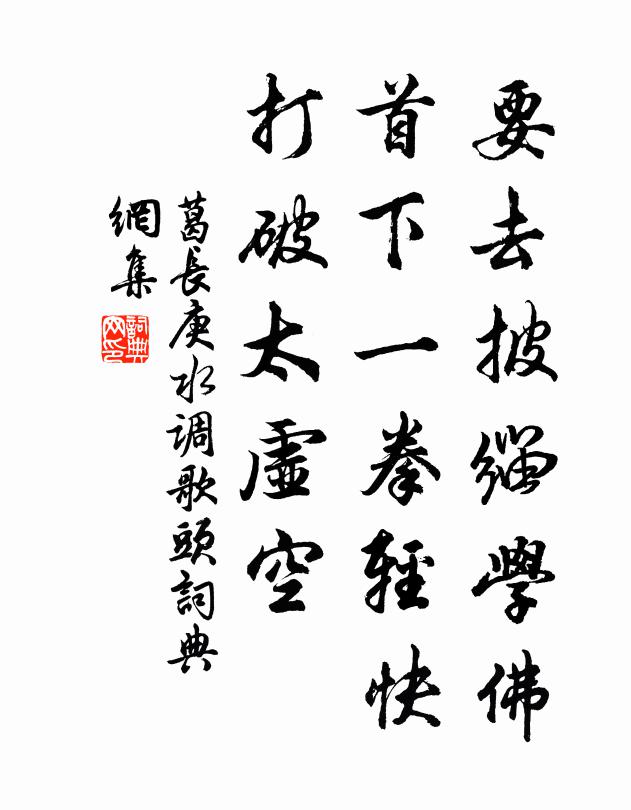 要去披緇學佛
首下一拳輕快
打破太虛空
葛長庚水调歌頭詞典
網集
詞典
网印